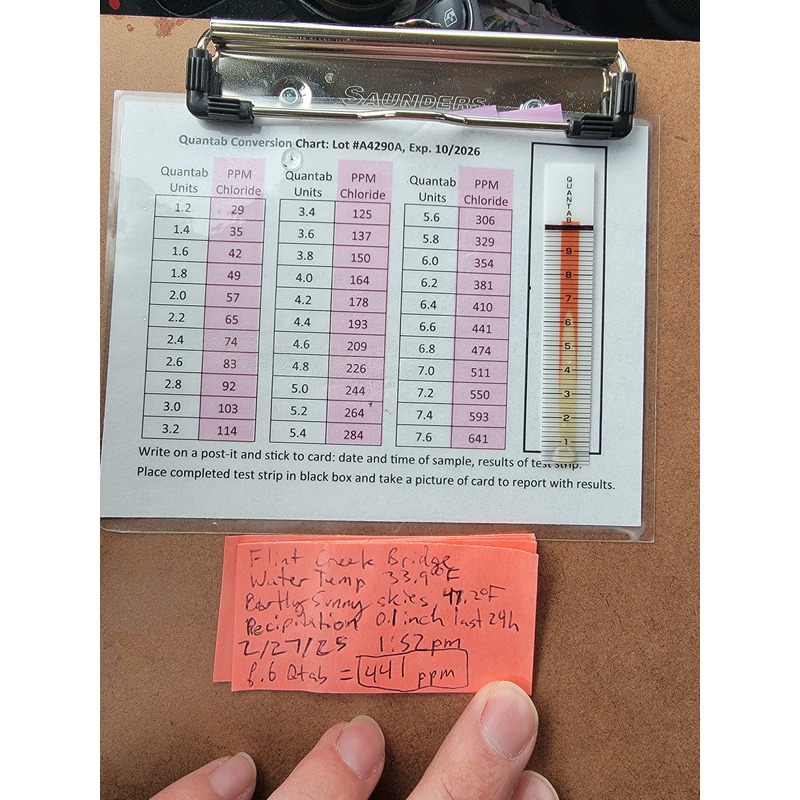 SAUNDERS
Quantab Conversion Chart: Lot #A4290A, Exp. 10/2026
Quantab Units PPM Chloride
1.2 29
1.4 35
1.6 42
1.8 49
2.0 57
2.2 65
2.4 74
2.6 83
2.8 92
3.0 103
3.2 114
Quantab Units PPM Chloride
3.4 125
3.6 137
3.8 150
4.0 164
4.2 178
4.4 193
4.6 209
4.8 226
5.0 244
5.2 264
5.4 284
Quantab Units PPM Chloride
5.6 306
5.8 329
6.0 354
6.2 381
6.4 410
6.6 441
6.8 474
7.0 511
7.2 550
7.4 593
7.6 641
QUANTAB
9
8
7
6
5
4
3
2
1
Write on a post-it and stick to card: date and time of sample, results of test strip.
Place completed test strip in black box and take a picture of card to report with results.
Flint Creek Bridge
Water Temp 33.9°F
Partly Sunny skies 47.2°F
Recipitation 0.1 inch last 24h
2/27/25 1:52pm
6.6 Qtab = 441 ppm